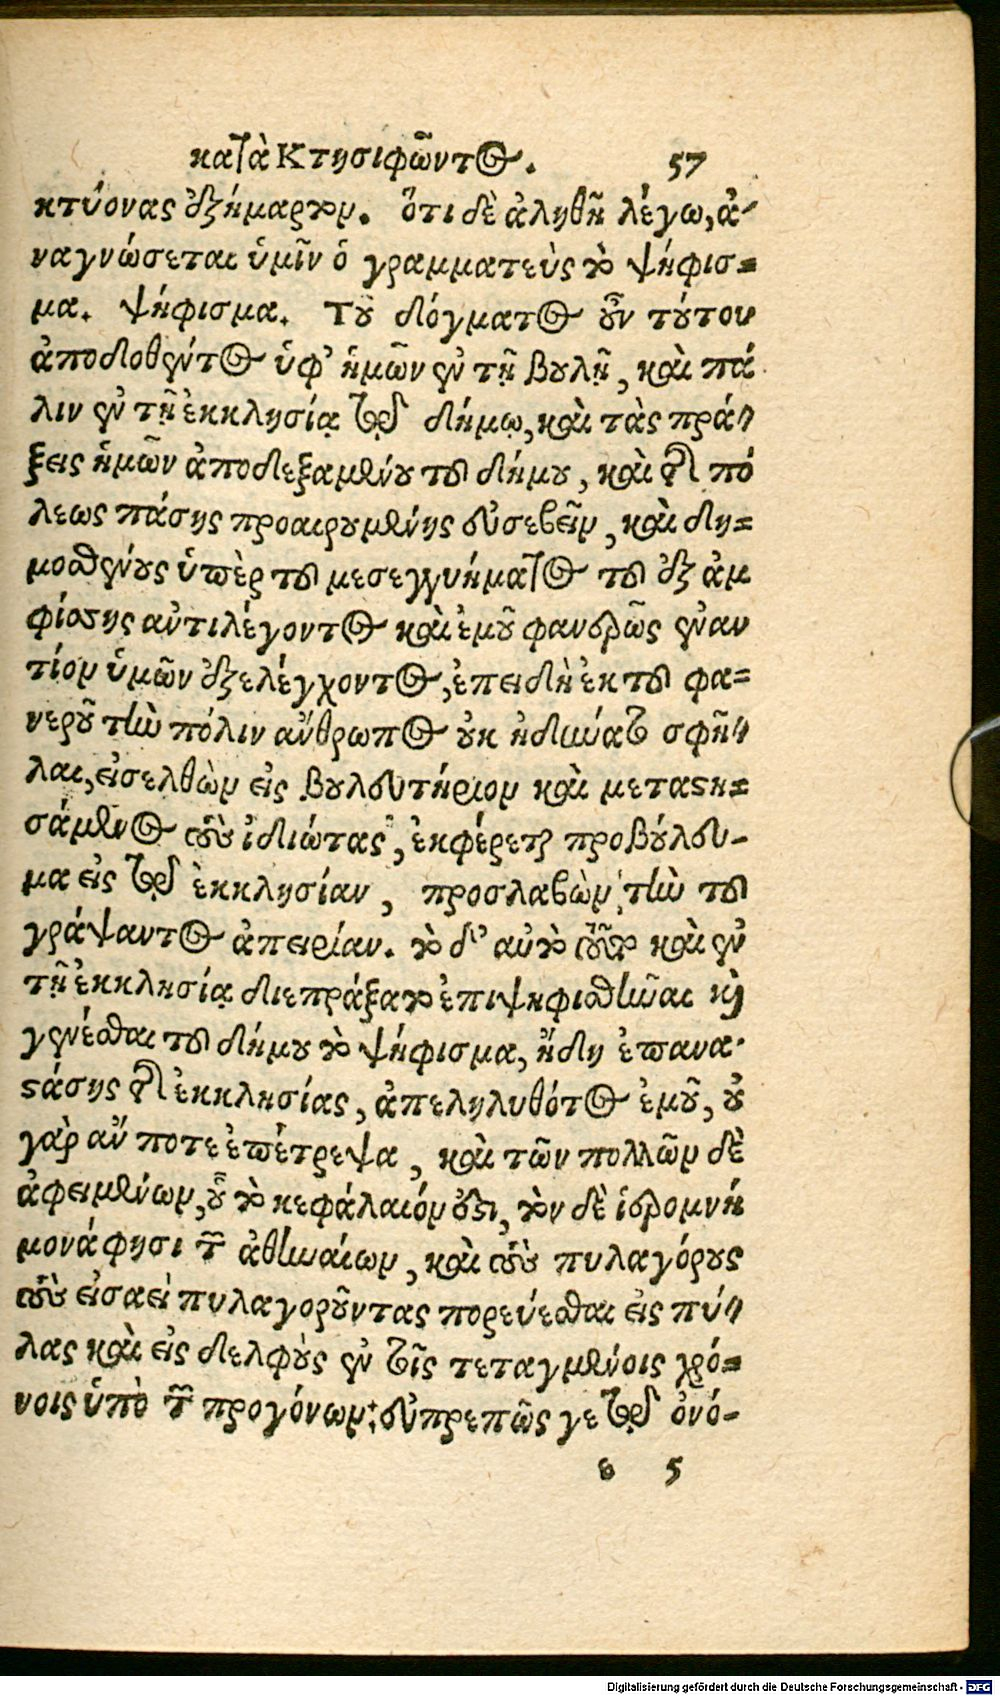 κατὰ Κτησιφῶντος. 57
κτύονας ἐξήμαρτον. ὅτι δὲ ἀληθῆ λέγω, ἀ-
ναγνώσεται ὑμῖν ὁ γραμματεὺς τὸ ψήφισ=
μα. ψήφισμα. Τοῦ δόγματος οὖν τούτου
ἀποδοθέντος ὑφ' ἡμῶν ἐν τῇ βουλῇ, καὶ πά
λιν ἐν τῇ ἐκκλησίᾳ τῷ δήμῳ, καὶ τὰς πρά-
ξεις ἡμῶν ἀποδεξαμένου τοῦ δήμου, καὶ τῆς πό
λεως πάσης προαιρουμένης εὐσεβεῖν, καὶ δη=
μοσθένους ὑπὲρ τοῦ μεσεγγυήματος τοῦ ἐξ ἀμ
φίσσης ἀντιλέγοντος καὶ ἐμοῦ φανερῶς ἐναν
τίον ὑμῶν ἐξελέγχοντος, ἐπειδὴ ἐκ τοῦ φα=
νεροῦ τὴν πόλιν ἅνθρωπος οὐκ ἠδύνατο σφῆ-
λαι, εἰσελθὼν εἰς βουλευτήριον καὶ μεταστη=
σάμενος τοὺς ἰδιώτας, ἐκφέρεται προβούλευ-
μα εἰς τὴν ἐκκλησίαν, προσλαβὼν τὴν τοῦ
γράψαντος ἀπειρίαν. τὸ δ' αὐτὸ τοῦτο καὶ ἐν
τῇ ἐκκλησίᾳ διεπράξατο ἐπιψηφισθῆναι καὶ
γενέσθαι τοῦ δήμου τὸ ψήφισμα, ἤδη ἐπανα-
στάσης τῆς ἐκκλησίας, ἀπεληλυθότος ἐμοῦ, οὐ
γὰρ ἄν ποτε ἐπέτρεψα, καὶ τῶν πολλῶν δὲ
ἀφειμένων, οὗ τὸ κεφάλαιόν ἐστι, τὸν δὲ ἱερομνή
μονά φησι τῶν ἀθηναίων, καὶ τοὺς πυλαγόρους
τοὺς εἰσαεὶ πυλαγοροῦντας πορεύεσθαι εἰς πύ-
λας καὶ εἰς δελφοὺς ἐν τοῖς τεταγμένοις χρό=
νοις ὑπὸ τῶν προγόνων; εὐπρεπῶς γε τῷ ὀνό-
e 5
Digitalisierung gefördert durch die Deutsche Forschungsgemeinschaft - DFG